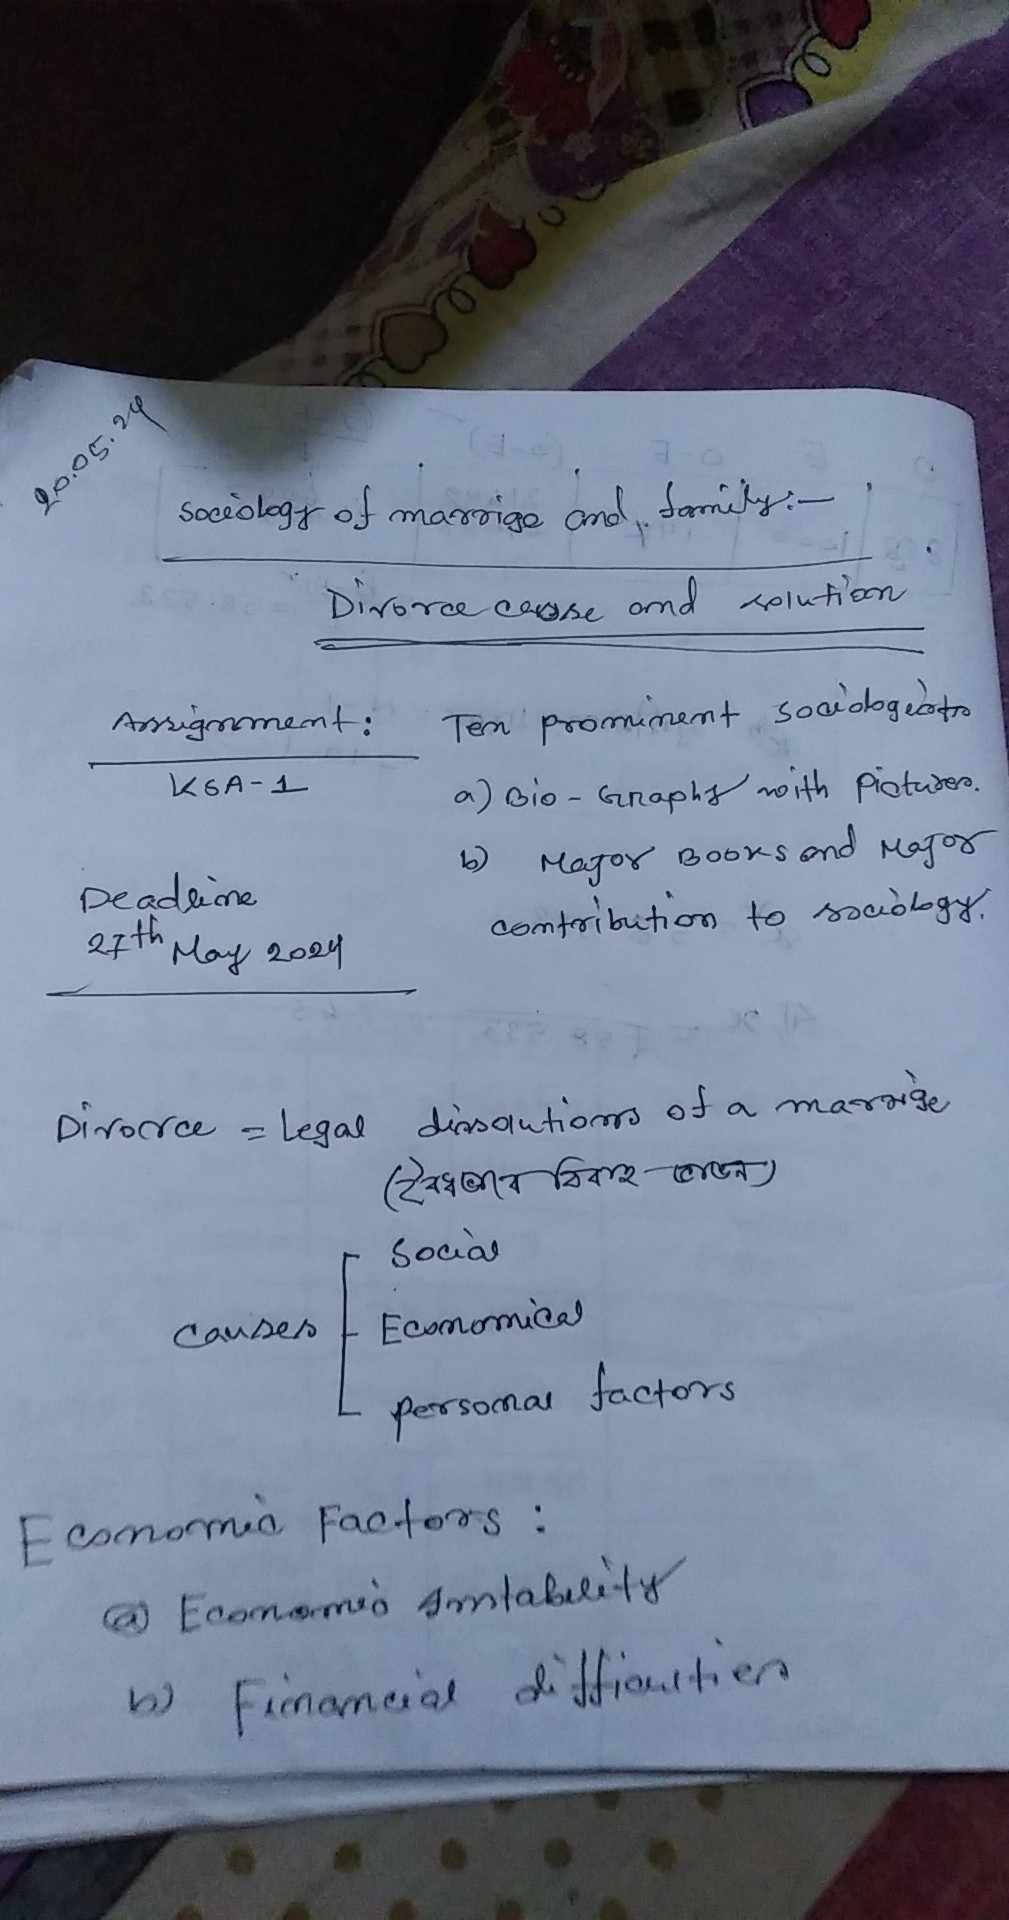 20.05.24
sociology of marrige and family:-
Divorce cause and solution
Assignment: Ten prominent sociologists
KSA-1
a) Bio-Graphy with Pictures.
b) Major Books and Major
contribution to sociology.
Deadline
27th May 2024
Divorce = Legal dissolutions of a marrige
(বৈধভাবে বিবাহ
Social
causes Economical
personal factors
Economic Factors:
a) Economic instability
b) Financial difficulties